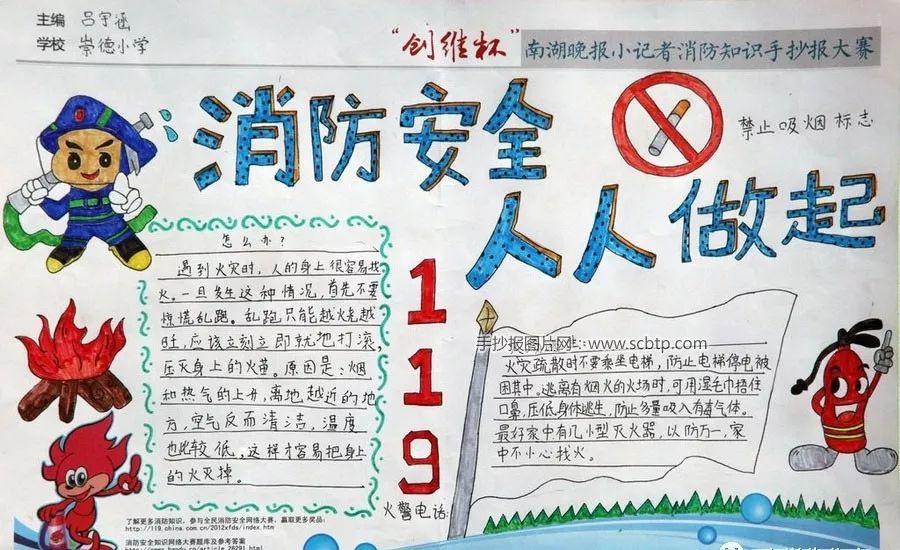 主编 吕宇涵
学校 崇德小学
“创维杯”南湖晚报小记者消防知识手抄报大赛
消防安全
人人做起
禁止吸烟标志
怎么办？
遇到火灾时，人的身上很容易找
火。一旦发生这种情况，首先不要
惊慌乱跑。乱跑只能越火越
旺，应该立刻立即就地打滚，
压灭身上的火苗。原因是：烟
和热气的上升，离地越近的地
方，空气反而清洁，温度
也比较低。这样才容易把身上
的火灭掉。
119
火警电话：
手抄报图片网：www.scbtp.com
火灾疏散时不要乘坐电梯，防止电梯停电被
困其中。逃离有烟火的火场时，可用湿毛巾捂住
口鼻，压低身体逃生，防止多量吸入有毒气体。
最好家中有几小型灭火器，以防万一，家
中不小心找火。
了解更多消防知识，参与全民消防安全网络大赛，赢取更多奖品：
http://119.china.com.cn/2012xfds/index.htm
消防安全网络大赛题库及参考答案